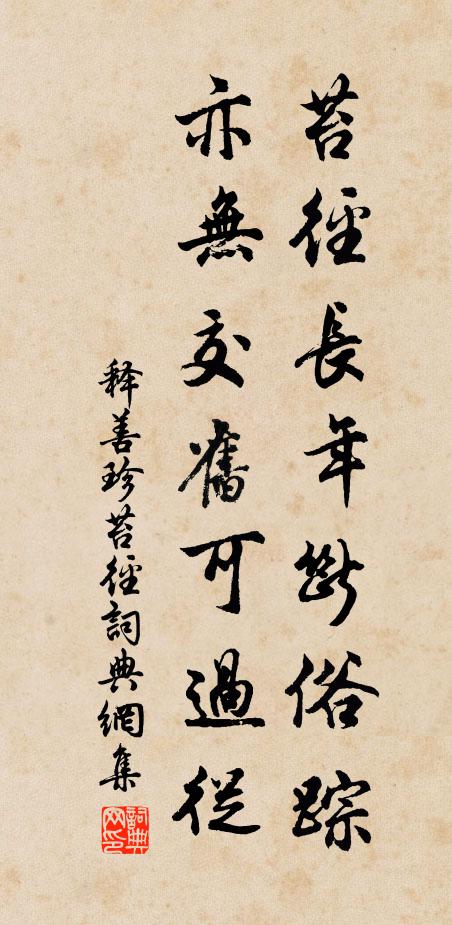 苔徑長年斷俗踪
亦無交舊可過從
释善珍苔徑詞典網集
詞典网印